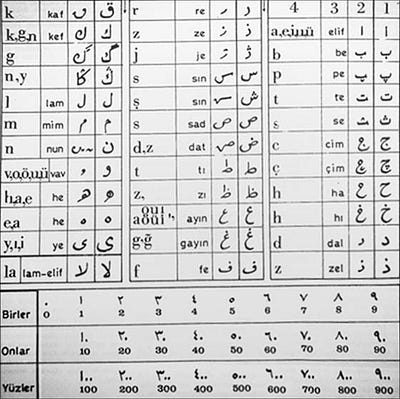 k kaf ق ق r re ر ر 4 3 2 1
k,g,n kef ك ك z ze ز ز elif ا ا
g گ گ j je ژ ژ b be ب ب
n,y ڭ s sın س س p pe پ پ
l lam ل ل ş sın ش ش t te ت ت
m mim م م s sad ص ص s se ث ث
n nun ن ن d,z dat ض ض c cim ج ج
v,o,ö,u,ü vav و و t tı ط ط ç çim چ چ
h,a,e he ه ه z, zı ظ ظ h ha ح ح
e,a he ه ه ayın ع ع h hı خ خ
y,ı,i ye ى ى g,ğ gayın غ غ d dal د د
la lam-elif لا لا f fe ف ف z zel ذ ذ
Birler ٠ ١ ٢ ٣ ٤ ٥ ٦ ٧ ٨ ٩
0 1 2 3 4 5 6 7 8 9
Onlar ١٠ ٢٠ ٣٠ ٤٠ ٥٠ ٦٠ ٧٠ ٨٠ ٩٠
10 20 30 40 50 60 70 80 90
Yüzler ١٠٠ ٢٠٠ ٣٠٠ ٤٠٠ ٥٠٠ ٦٠٠ ٧٠٠ ٨٠٠ ٩٠٠
100 200 300 400 500 600 700 800 900